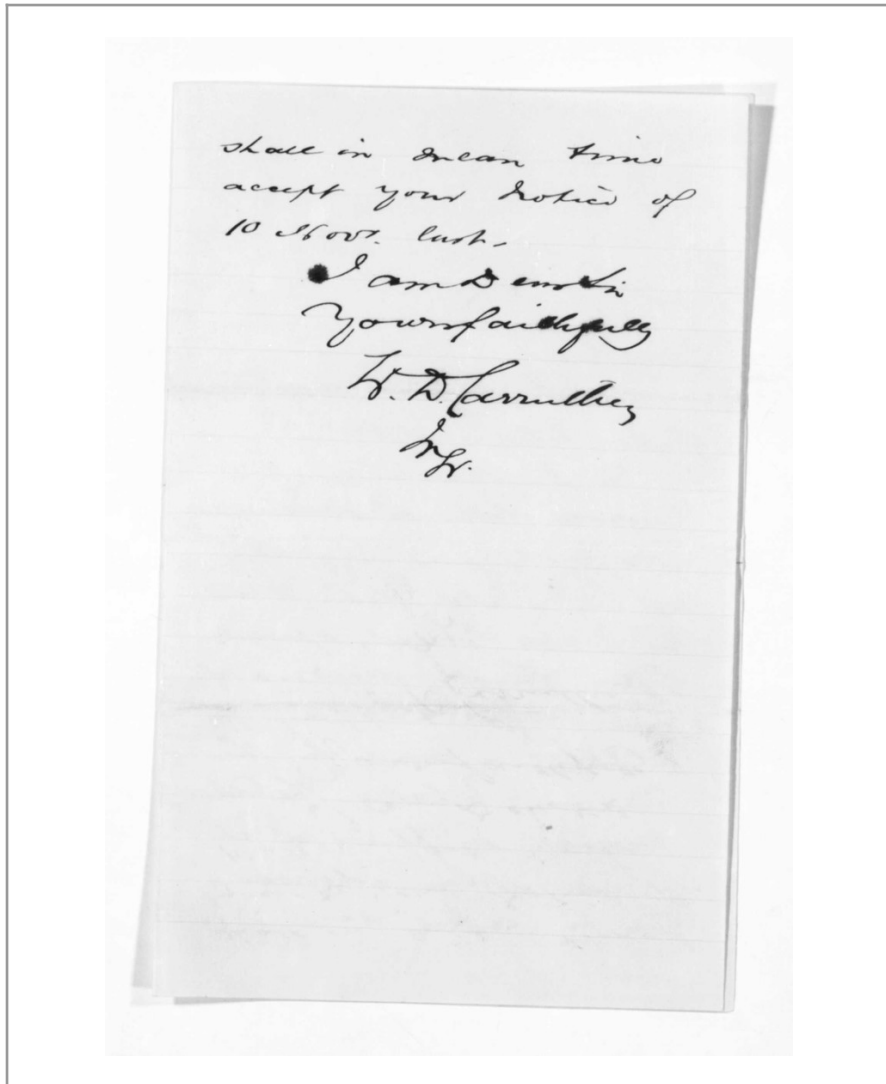 shall in mean time
accept your notice of
10 Novr. last.
I am Dear Sir
Yours faithfully
W. D. Carruthers